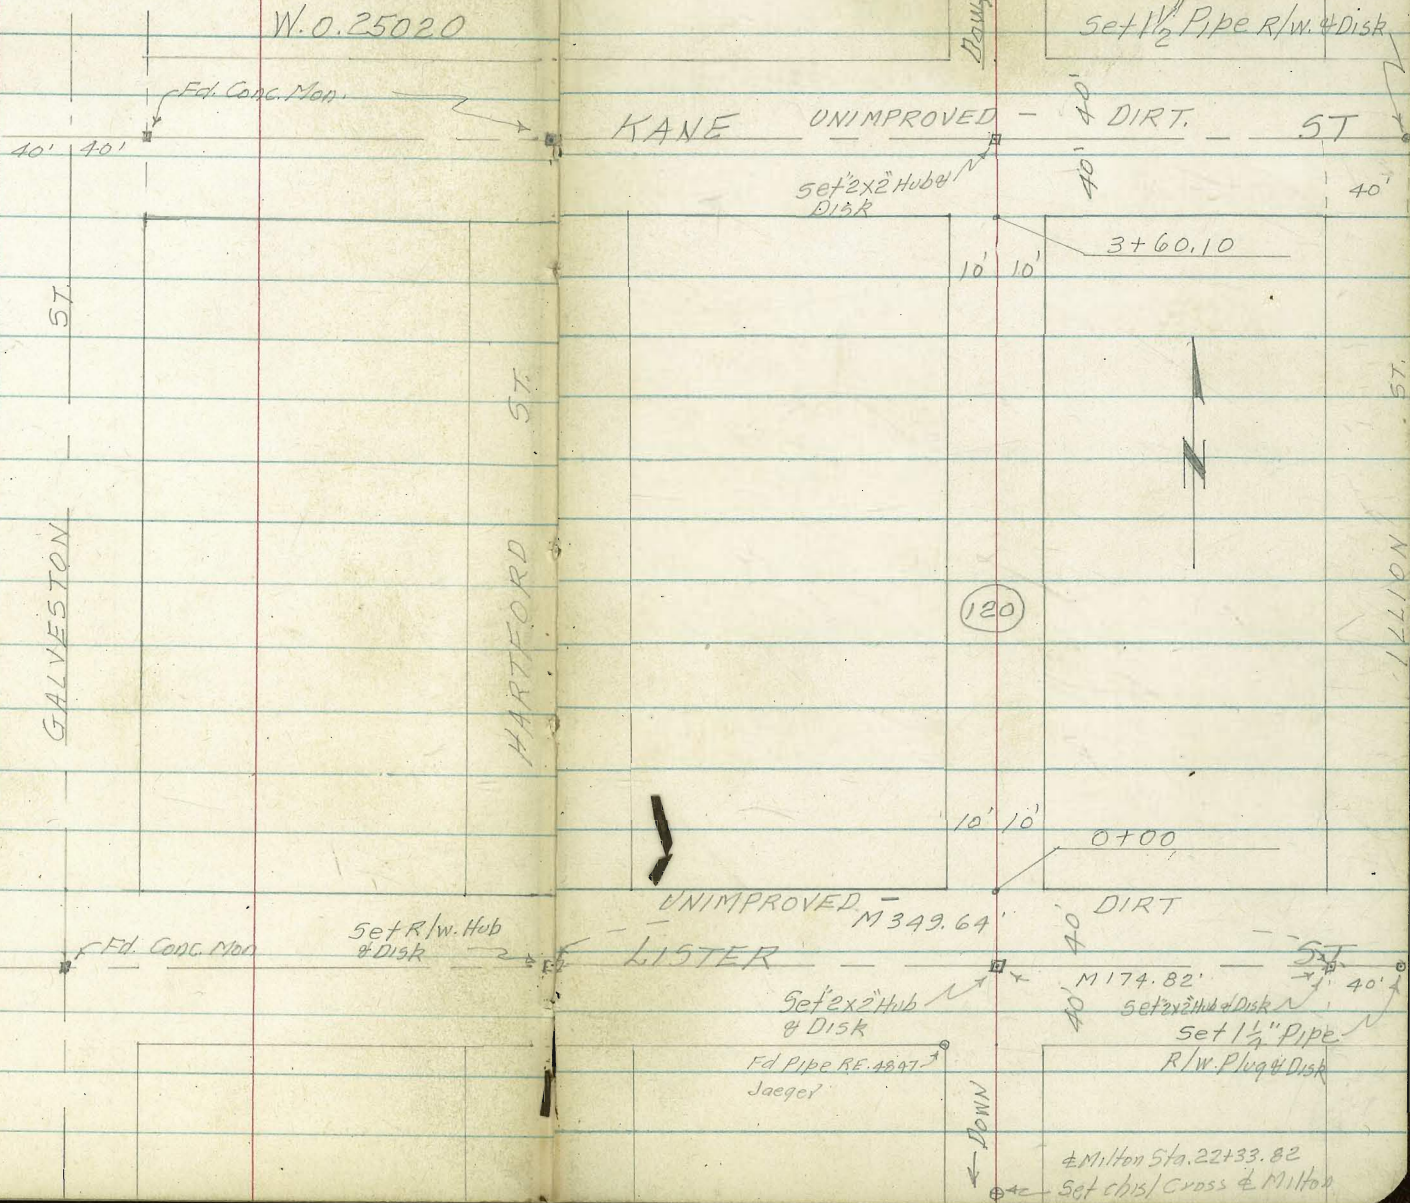 W.O. 25020
Set 1 1/2" Pipe R/W. & Disk
Fd. Conc. Mon.
KANE
UNIMPROVED - DIRT.
ST
40' 40'
40'
40'
40'
Set 2"x2" Hub &
Disk
3+60.10
10' 10'
ST.
ST.
ST.
GALVESTON
HARTFORD
120
10' 10'
0+00
UNIMPROVED - DIRT
M 349.64'
Set R/W. Hub
& Disk
Fd. Conc. Mon
LISTER
ST
40'
40'
M 174.82'
40'
Set 2"x2" Hub
& Disk
Set 2"x2" Hub & Disk
Set 1 1/2" Pipe
R/W. Plug & Disk
Fd Pipe R.E. 4897
Jaeger
← DOWN
℄ Milton Sta. 22+33.82
Set chisl Cross ℄ Milton